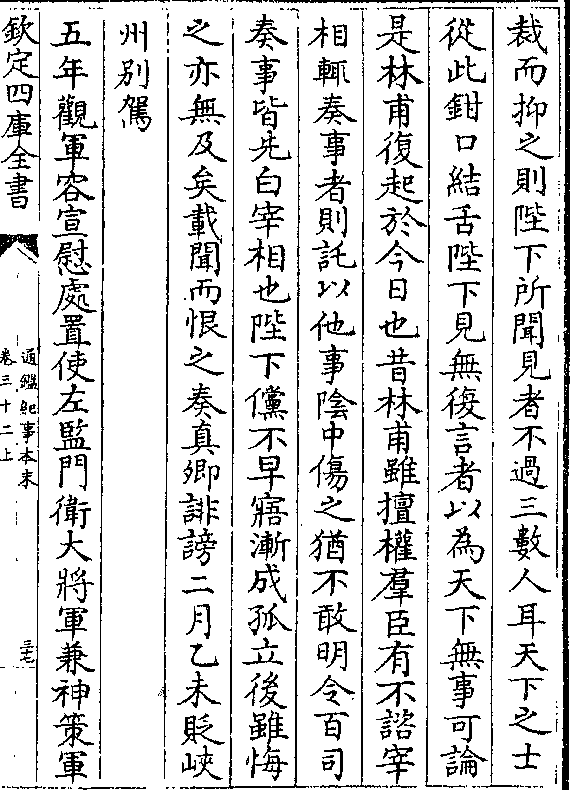 裁而抑之則陛下所聞見者不過三數人耳天下之士
從此鉗口結舌陛下見無復言者以為天下無事可論
是林甫復起於今日也昔林甫雖擅權羣臣有不諮宰
相輒奏事者則託以他事陰中傷之猶不敢明令百司
奏事皆先白宰相也陛下儻不早寤漸成孤立後雖悔
之亦無及矣載聞而恨之奏真卿誹謗二月乙未貶峽
州别駕
五年觀軍容宣慰處置使左監門衛大將軍兼神策軍
欽定四庫全書
通鑑紀事本末
卷三十二上
三七